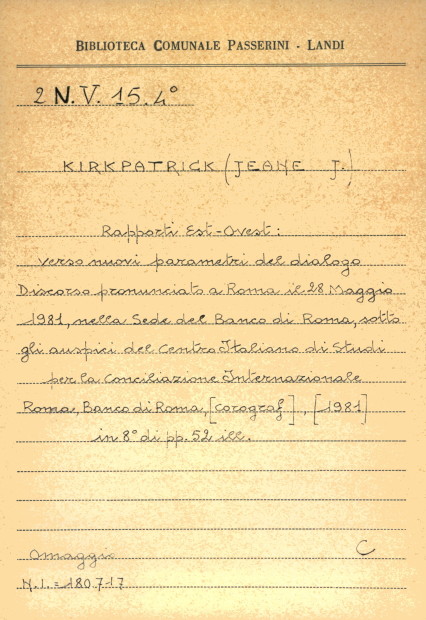 BIBLIOTECA COMUNALE PASSERINI - LANDI
2 N. V. 15. 4°
KIRKPATRICK (JEANE J.)
Rapporti Est-Ovest:
verso nuovi parametri del dialogo
Discorso pronunciato a Roma il 28 Maggio
1981, nella Sede del Banco di Roma, sotto
gli auspici del Centro Italiano di Studi
per la Conciliazione Internazionale
Roma, Banco di Roma, [Corograf], [1981]
in 8° di pp. 52 ill.
Omaggio C
N.I. = 180717